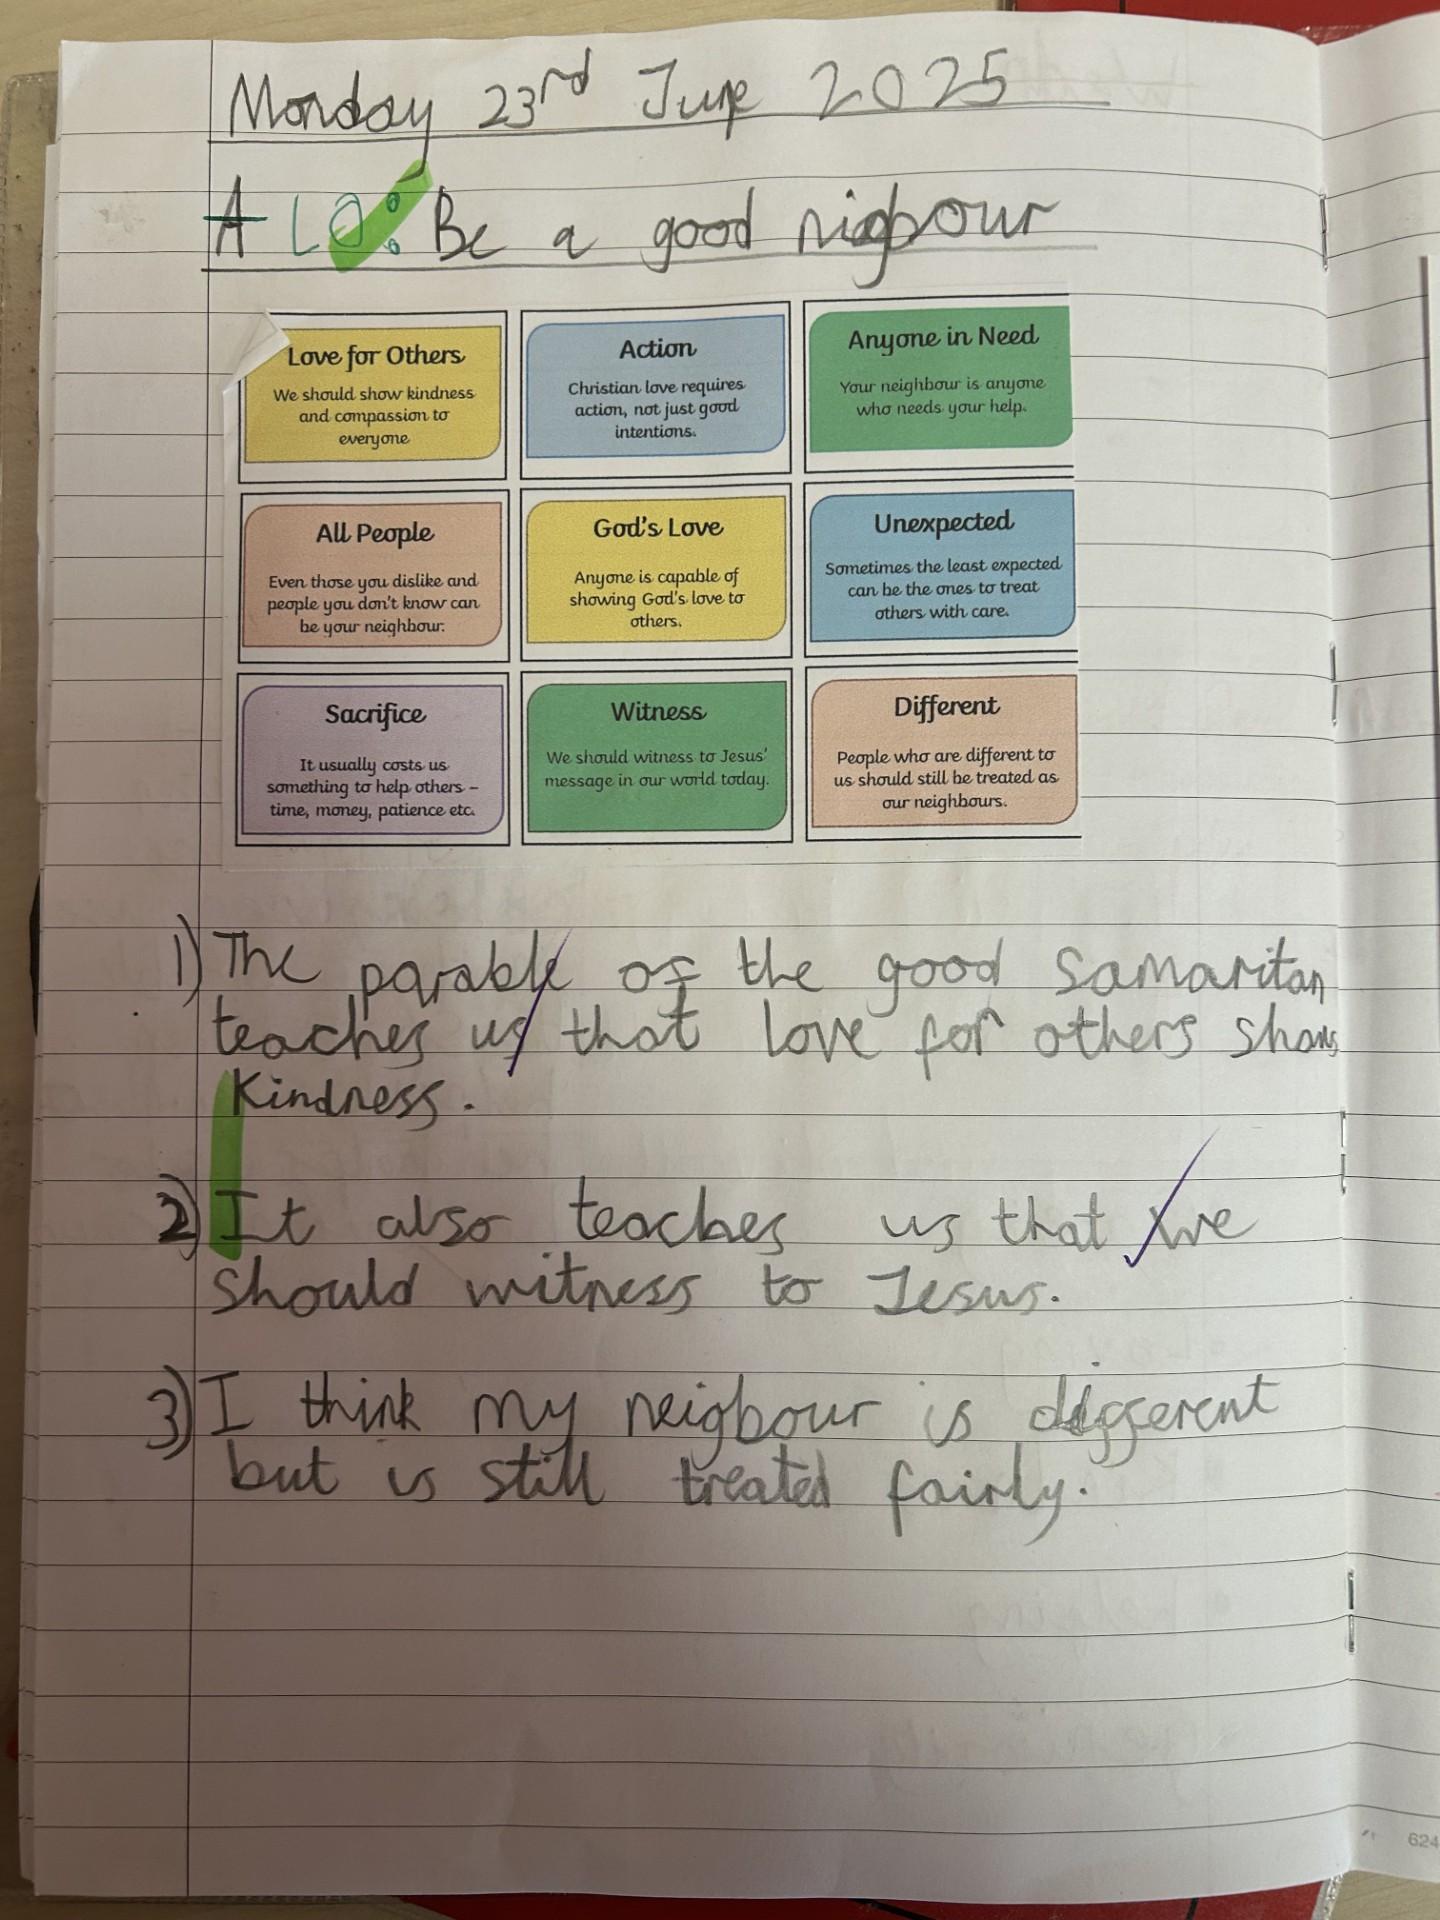 Monday 23rd June 2025
A LO: Be a good nigbour
Love for Others
We should show kindness
and compassion to
everyone
Action
Christian love requires
action, not just good
intentions.
Anyone in Need
Your neighbour is anyone
who needs your help.
All People
Even those you dislike and
people you don't know can
be your neighbour.
God's Love
Anyone is capable of
showing God's love to
others.
Unexpected
Sometimes the least expected
can be the ones to treat
others with care.
Sacrifice
It usually costs us
something to help others –
time, money, patience etc.
Witness
We should witness to Jesus'
message in our world today.
Different
People who are different to
us should still be treated as
our neighbours.
1) The parable of the good Samaritan
teaches us that love for others shows
kindness.
2) It also teaches us that we
should witness to Jesus.
3) I think my neigbour is different
but is still treated fairly.
624